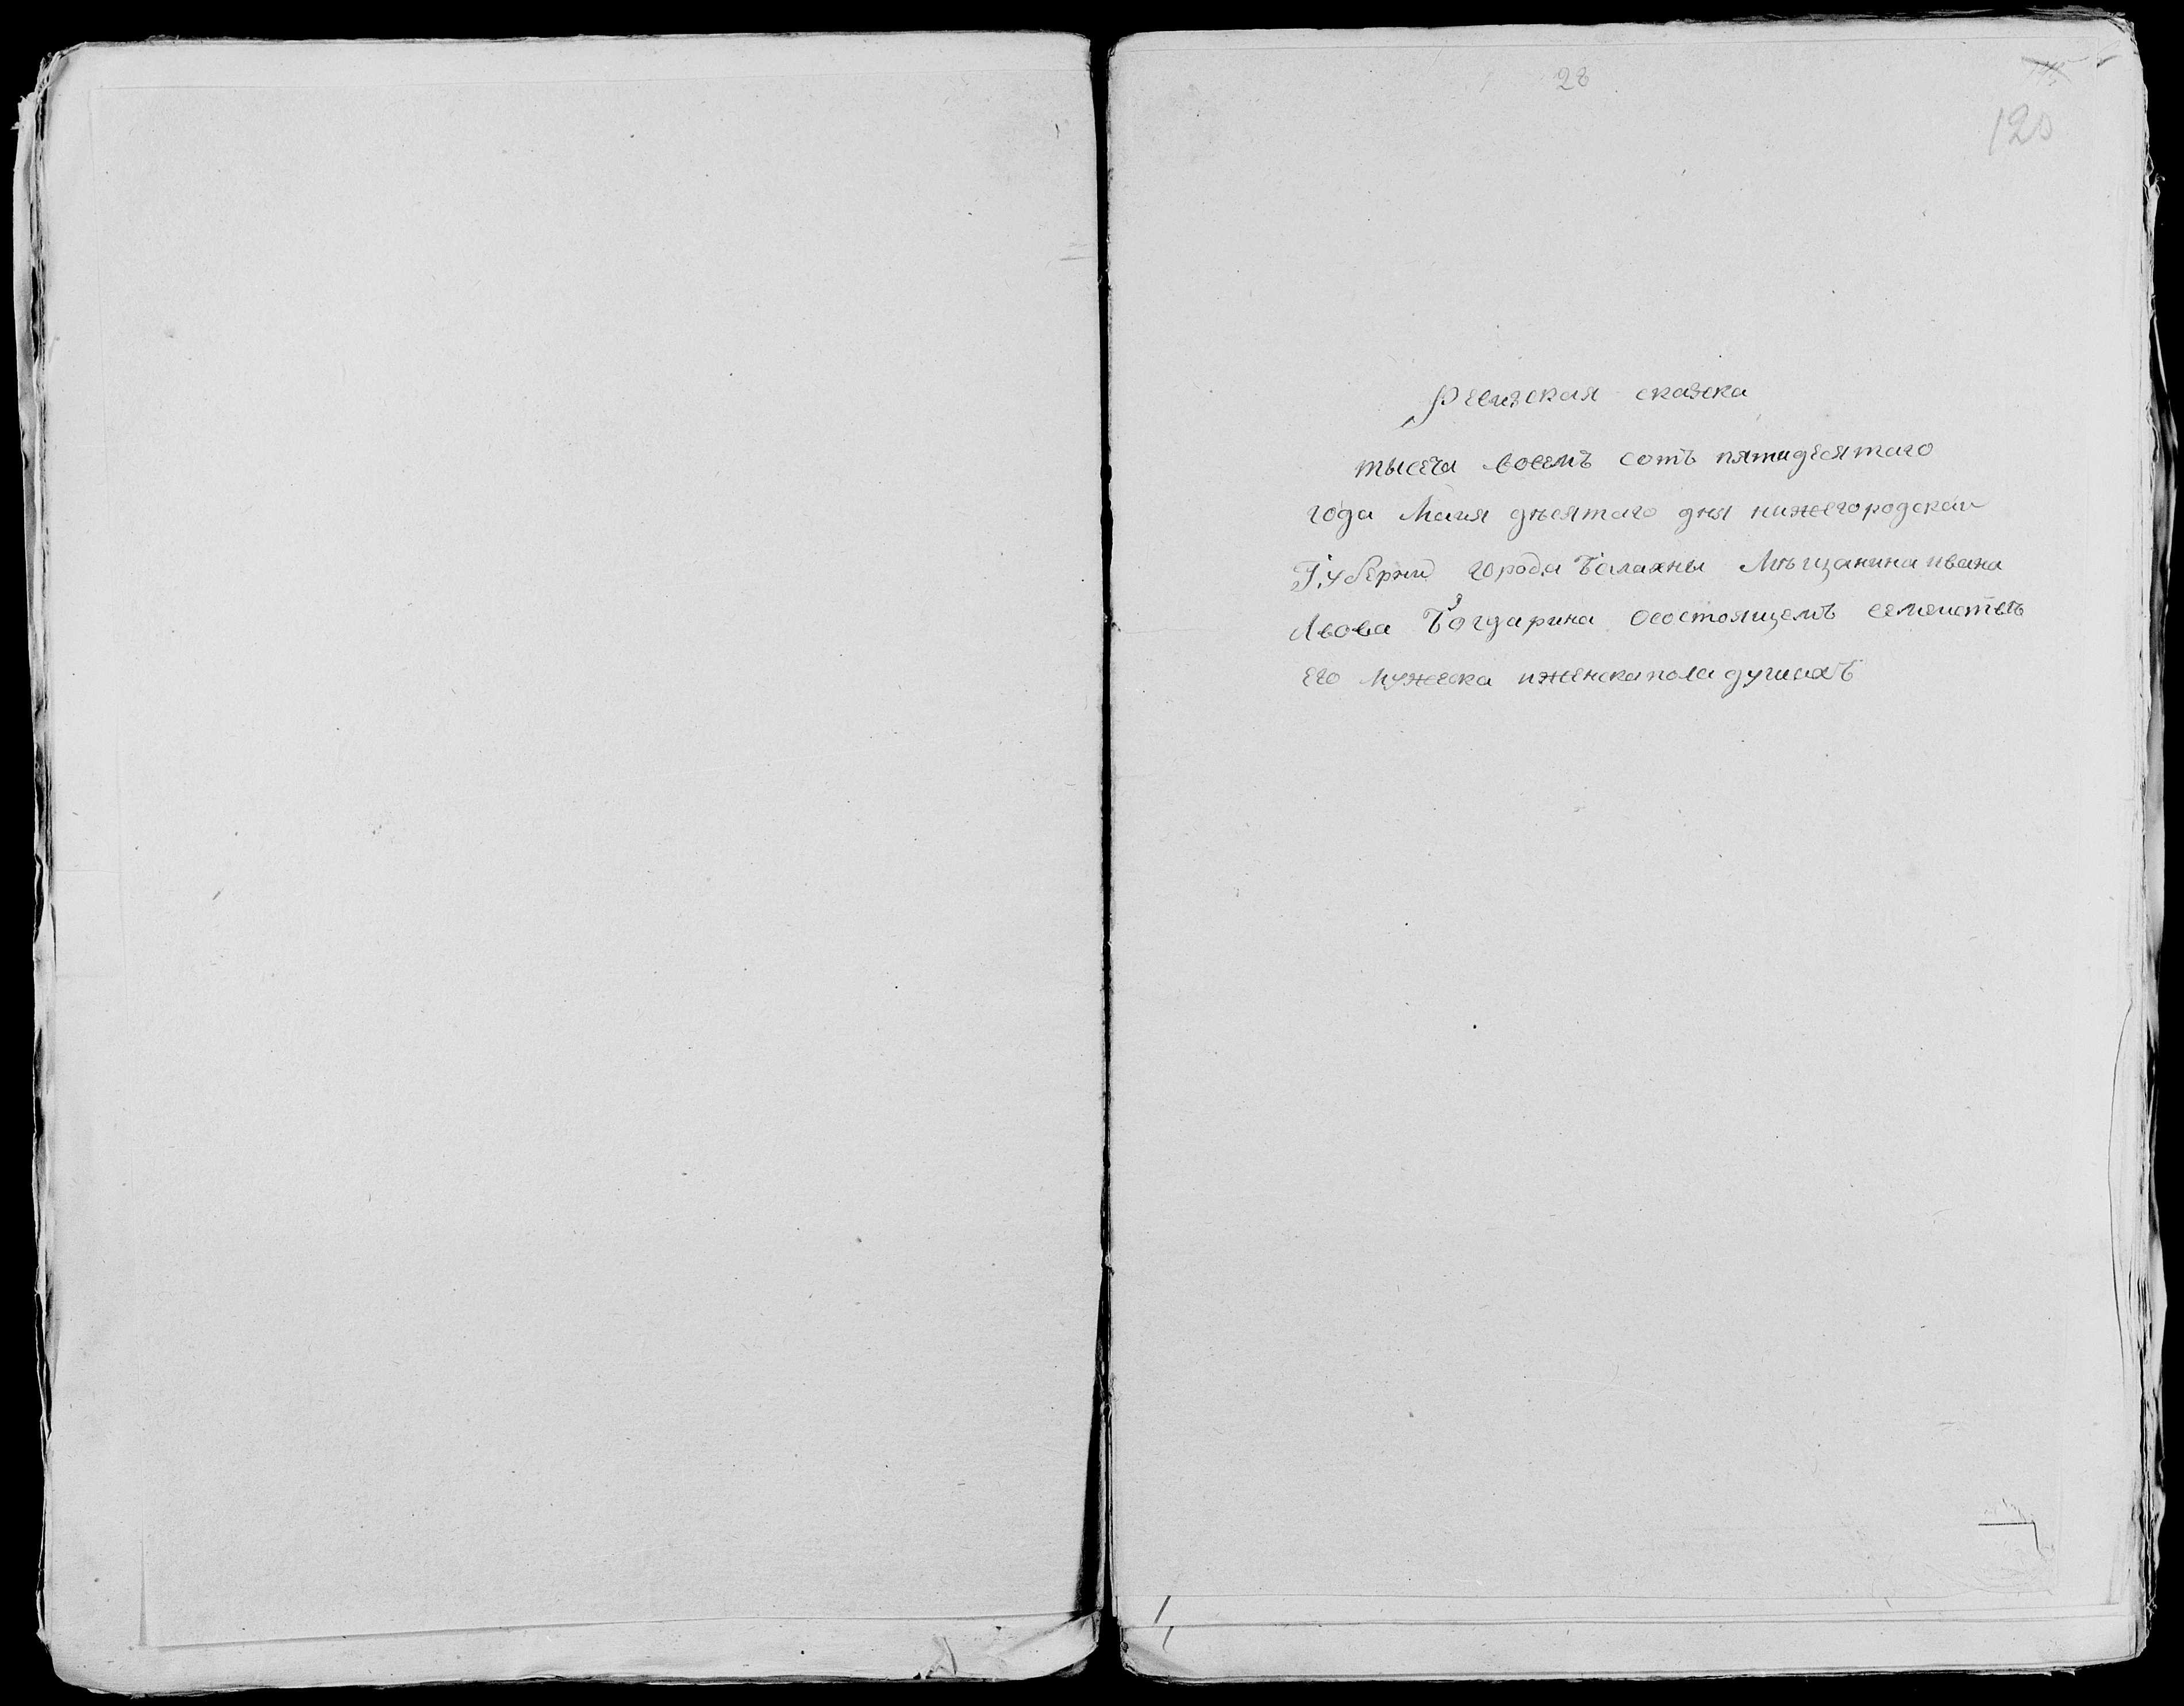 28
120
Ревизская сказка
тысеча восемъ сотъ пятидесятаго
года Маия дѣсятаго дня нижегородскаи
Губернии города Балахны Мѣщанина ивана
Лвова Богдарина осостоящемъ семеиствѣ
его мужеска иженска пола душахъ